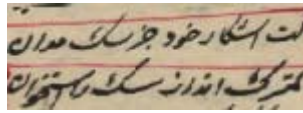 کت اشکار خود جز سک مدان
کمتر کی اندازند سک را استخوان